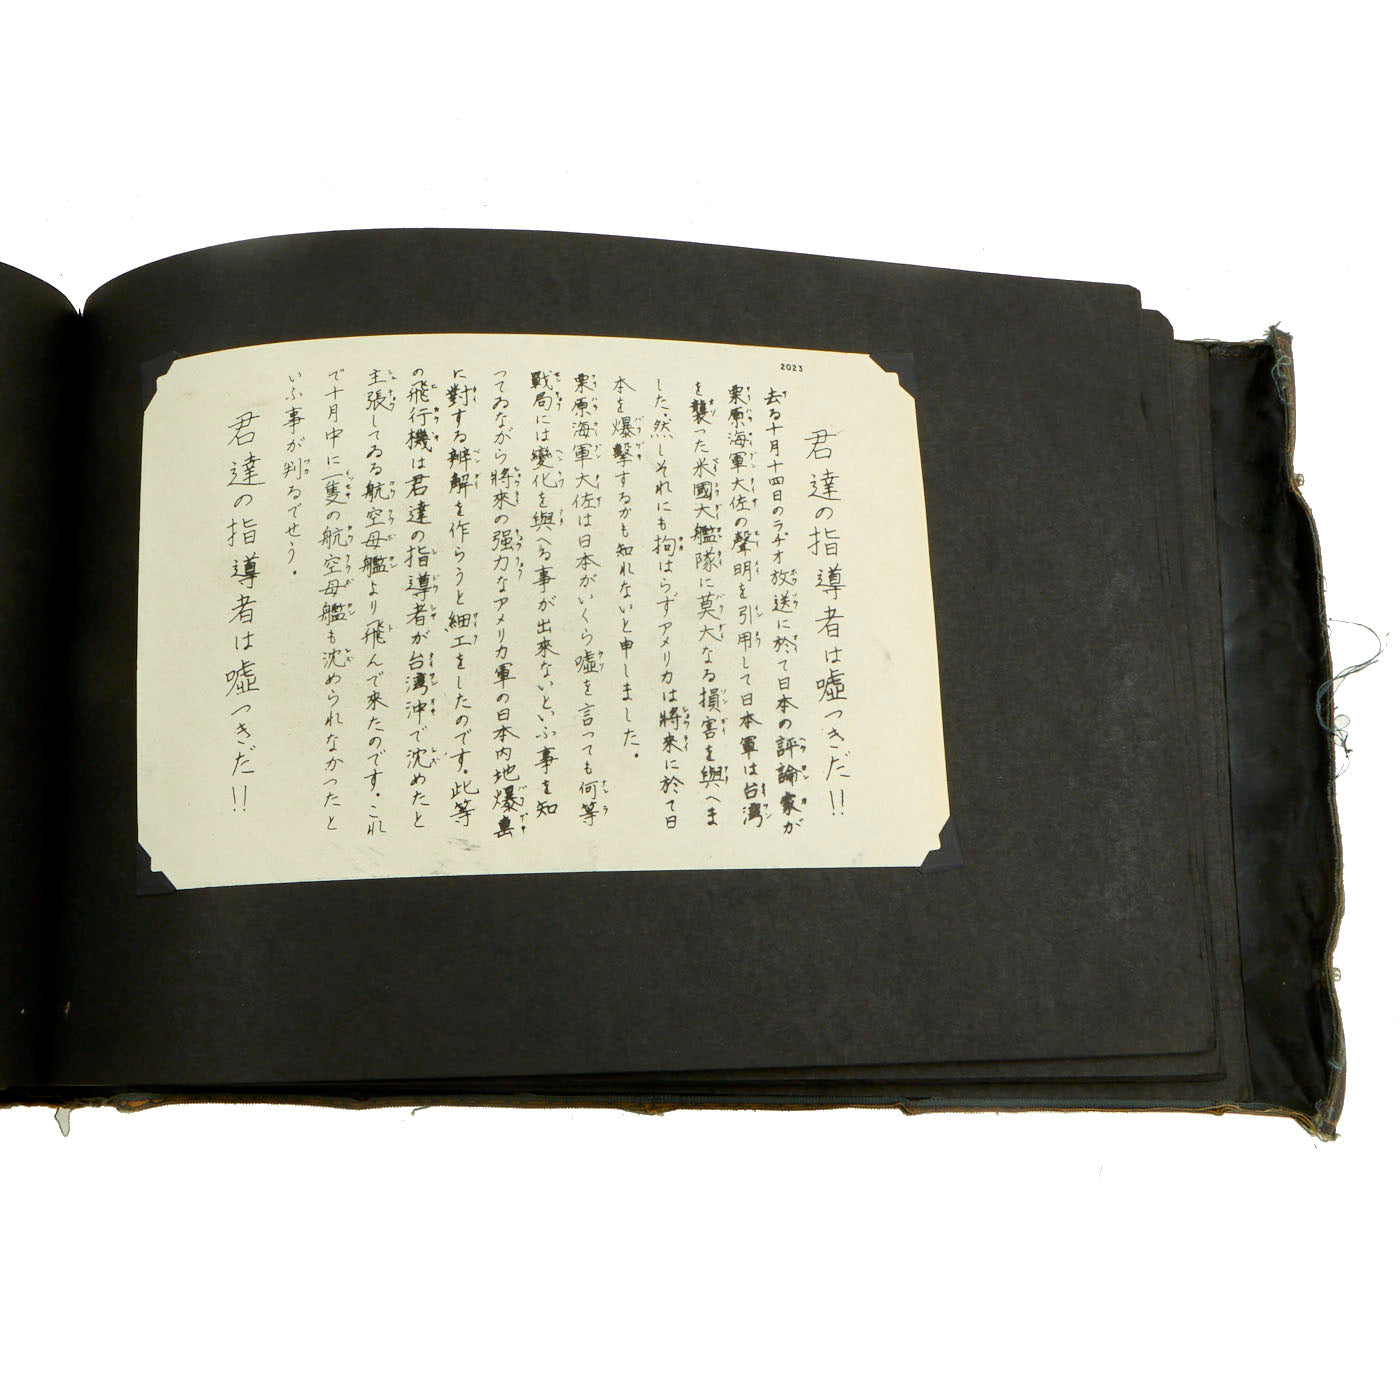 2023
君達の指導者は嘘つきだ!!
去る十月十四日のラヂオ放送に於て日本の評論家が
栗原海軍大佐の聲明を引用して日本軍は台湾
を襲った米國大艦隊に莫大なる損害を與へま
した.然しそれにも拘はらずアメリカは將來に於て日
本を爆擊するかも知れないと申しました.
栗原海軍大佐は日本がいくら嘘を言っても何等
戰局には變化を與へる事が出來ないといふ事を知
ってゐながら將來の强力なアメリカ軍の日本内地爆擊
に對する辨解を作らうと細工をしたのです.此等
の飛行機は君達の指導者が台湾沖で沈めたと
主張してゐる航空母艦より飛んで来たのです.これ
で十月中に一隻の航空母艦も沈められなかったと
いふ事が判るでせう.
君達の指導者は嘘つきだ!!